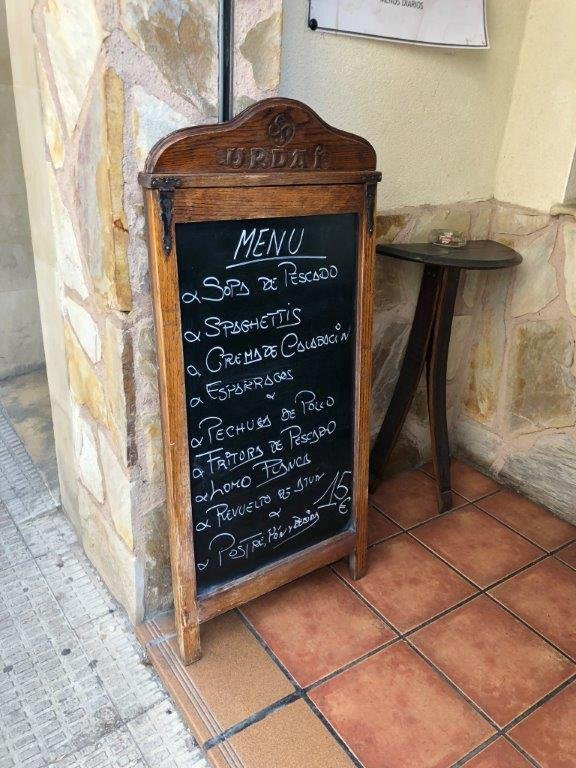 MENUS DIARIOS
URDAI
MENU
α SOPA DE PESCADO
α SPAGHETTIS
α CREMA DE CALABACIN
α ESPARRAGOS
α
α PECHUGA DE POLLO
α FRITURA DE PESCADO
α LOMO PLANCA
α REVUELTO DE ATUN
α
α POSTRE, PAN Y BEBIDA
15 €